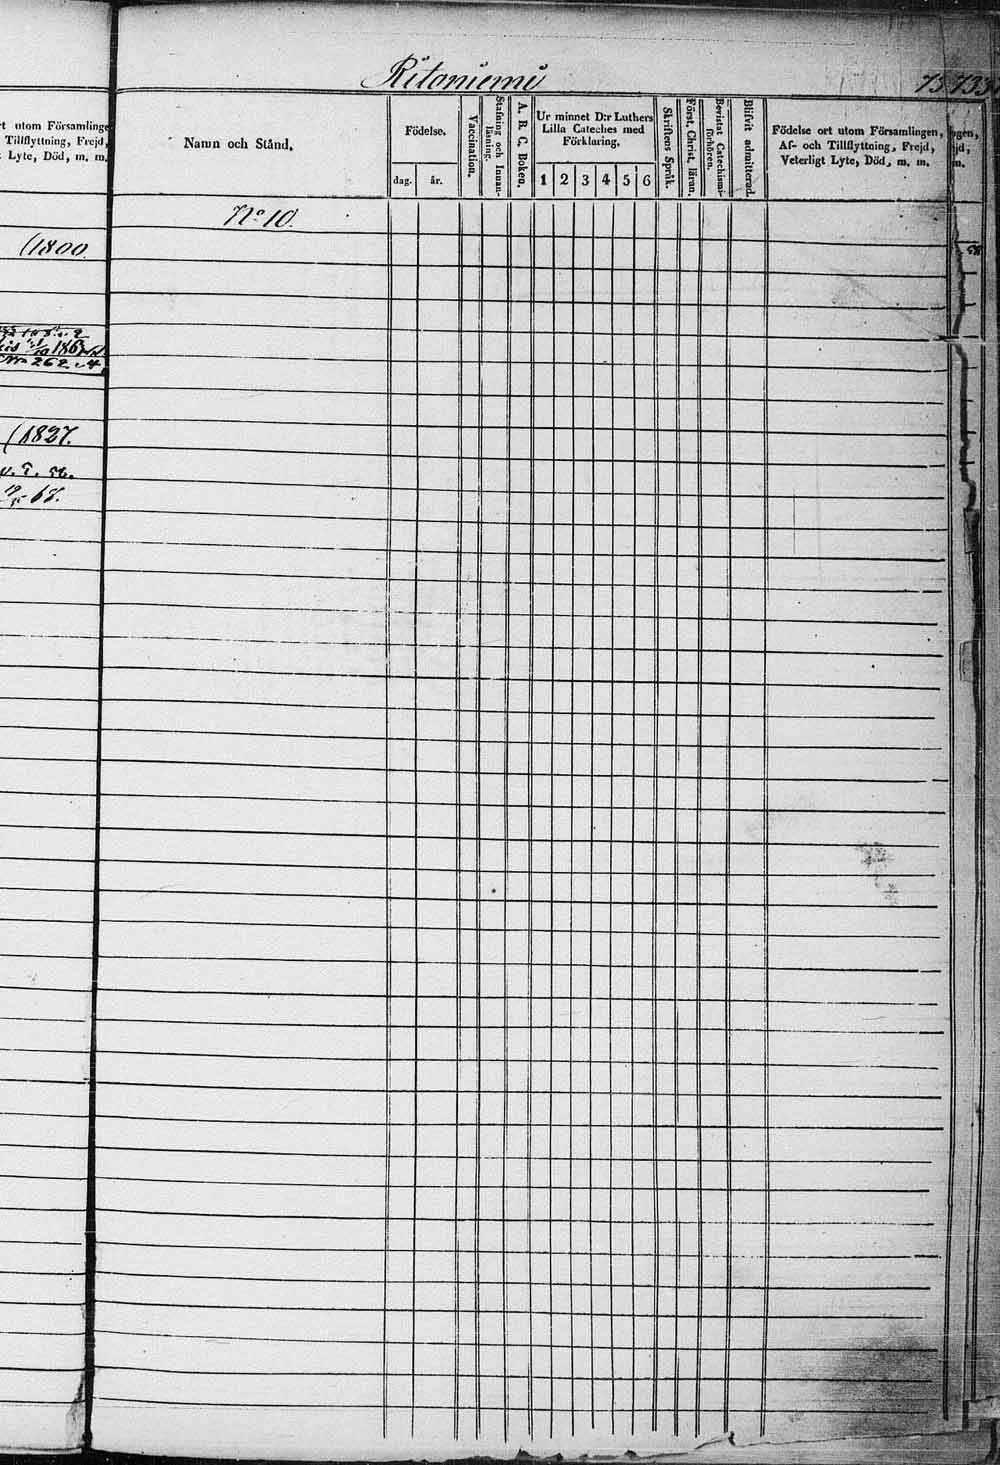 Ritaniemi
73 733
rt utom Församlinge
Tillflyttning, Frejd,
Lyte, Död, m. m.
Namn och Stånd.
Födelse.
dag. år.
Vaccination.
Stafning och Innan-
läsning.
A. B. C. Boken.
Ur minnet D:r Luthers
Lilla Cateches med
Förklaring.
1 2 3 4 5 6
Skriftens Språk.
Först. Christ. läran.
Bevistat Catechismi-
förhören.
Blifvit admitterad.
Födelse ort utom Församlingen,
Af- och Tillflyttning, Frejd,
Veterligt Lyte, Död, m. m.
ngen,
jd,
m.
No 10.
(1800.
262
(1827.
67.